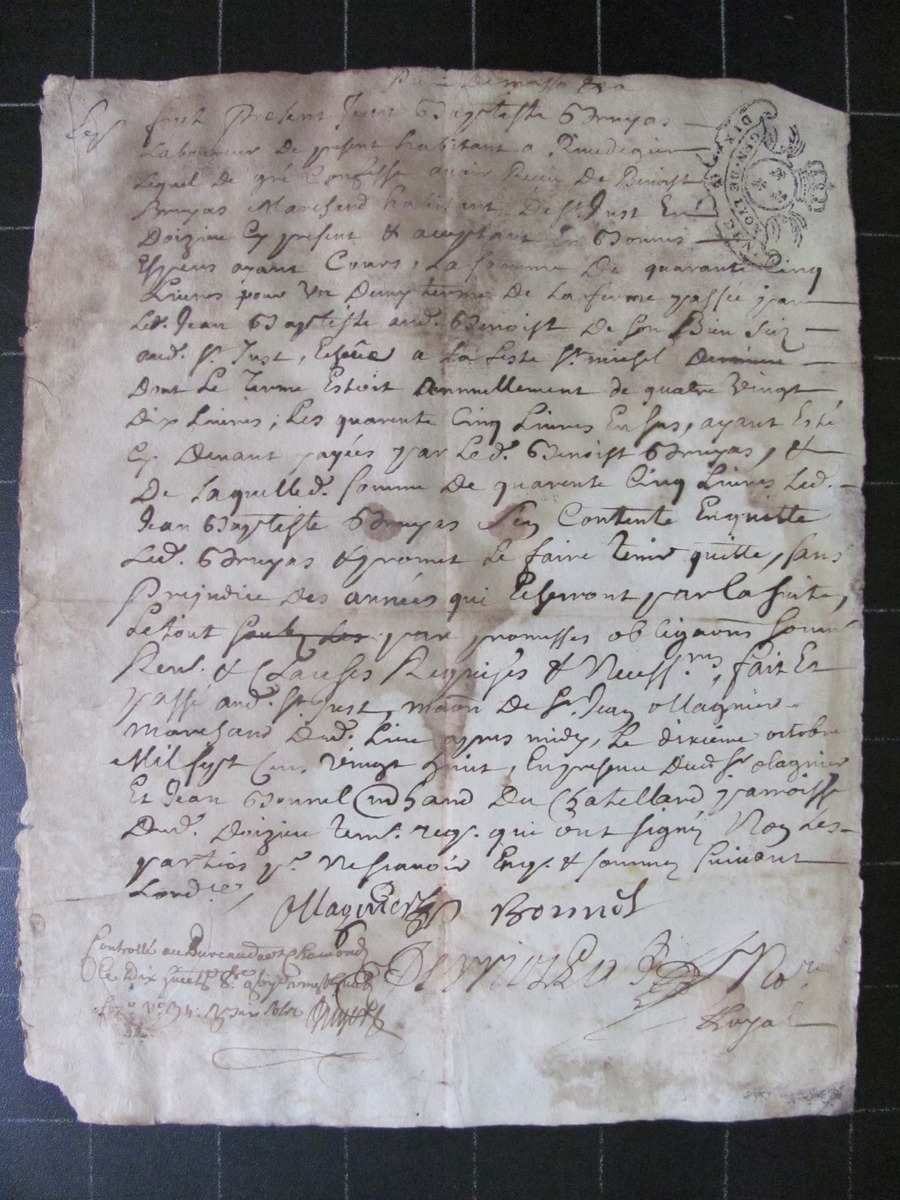 fust Present Jean Baptiste Bruyas
Laboureur De present habitant a Rivedegier
Lequel De gré Confesse avoir Receu De Benoist
Bruyas Marchand habitant De St Just En
Doizieu Cy present & aceptant En Bonnes
Espéces ayant Cours, La somme De quarante Cinq
Livres pour Un Demy terme De La ferme passée par
Led. Jean Baptiste aud. Benoist De son Bien Sciz
aud. St Just, Echeüe a La feste St michel Derniere
Dont Le Terme Estoit Annuellement de quatre Vingt
Dix Livres, Les quarente Cinq Livres En sus, ayant Esté
Cy Devant payées par Led. Benoist Bruyas, &
De Laquelled. somme De quarente Cinq Livres Led.
Jean Baptiste Bruyas Sen Contente En quitte
Led. Bruyas & promet Le faire tenir quitte, sans
Prejudice Des années qui Echerront par la suite,
Le tout par promesses obligaons soum
Renf. & Clauses Requises & Necessres, fait Et
passé aud. St Just, maon De Sr. Jean Olagnier
Marchand Dud. Lieu apres midy, Le dixième octobre
Mil sept Cens Vingt huit, En presence Dud. Sr olagnier
Et Jean Bonnet Mchand Du Chatelland parroisse
Dud. Doizieu tems. reqs. qui ont signé Non Les
parties pr. Ne sçavoir Enqs. & sommez suivant
Lordce
Ollagnier Bonnet
Controllé au Bureau de St Chamond
Royal
DIX
GEN. DE